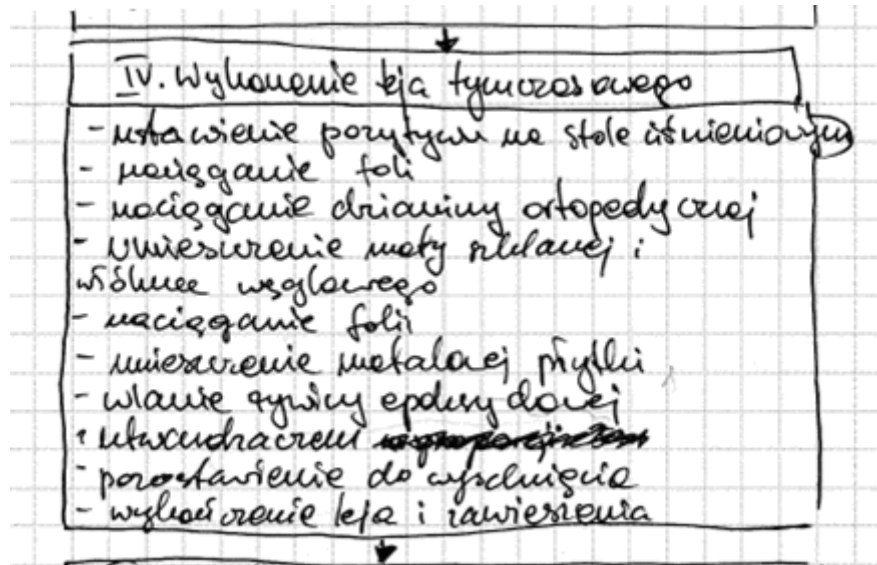 IV. Wykonanie leja tymczasowego
- ustawienie pozytywu na stole ciśnieniowym
- naciąganie foli
- naciąganie dzianiny ortopedycznej
- umieszczenie maty szklanej i
włókna węglowego
- naciąganie folii
- umieszczenie metalowej płytki
- wlanie żywicy epoksydowej
z utwardzaczem
- pozostawienie do wyschnięcia
- wykończenie leja i zawieszenia